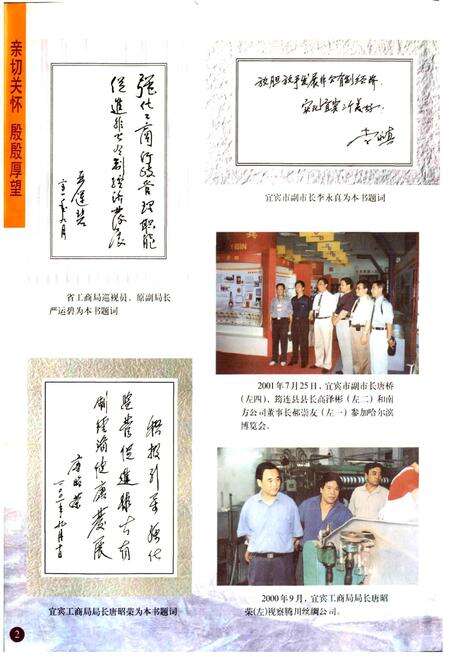 亲切关怀 殷殷厚望
强化工商行政管理职能
促進非公有制经济发展
严运碧
二〇〇一年九月
省工商局巡视员、原副局长
严运碧为本书题词
放胆放手发展非公有制经济
李永真
宜宾市副市长李永真为本书题词
2001年7月25日，宜宾市副市长唐桥
(左四)、筠连县县长高泽彬（左二）和南
方公司董事长郝崇友（左一）参加哈尔滨
博览会。
积极引导 强化
监督促進非公有
制经济健康发展
唐昭荣
宜宾工商局局长唐昭荣为本书题词
2000年9月，宜宾工商局局长唐昭
荣(左)视察腾川丝绸公司。
2